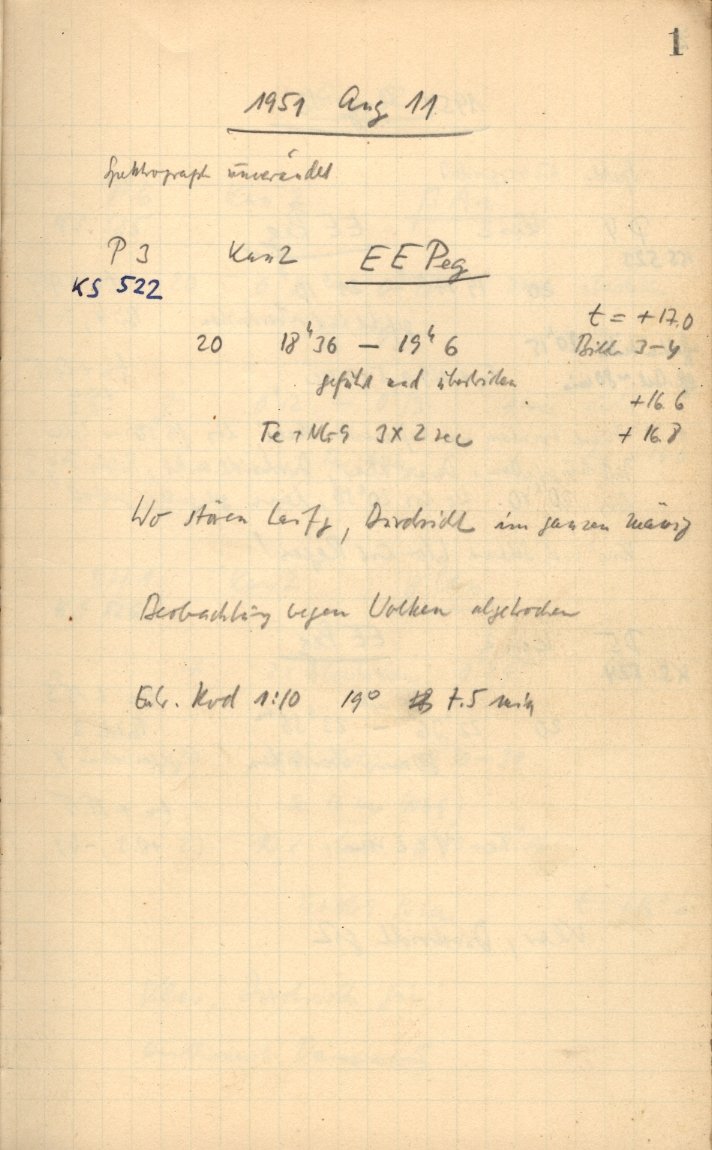 1
1951 Aug 11
Spektrograph unverändert
P 3 Kam 2 EE Peg
KS 522
t = +17.0
20 18ʰ36 – 19ʰ6 Bild 3–4
geführt und überstrichen
+16.6
3 x 2 sec +16.8
stören häufig, Durchsicht im ganzen mässig
Beobachtung wegen Wolken abgebrochen
Entw. Rod 1:10 19° 7.5 min